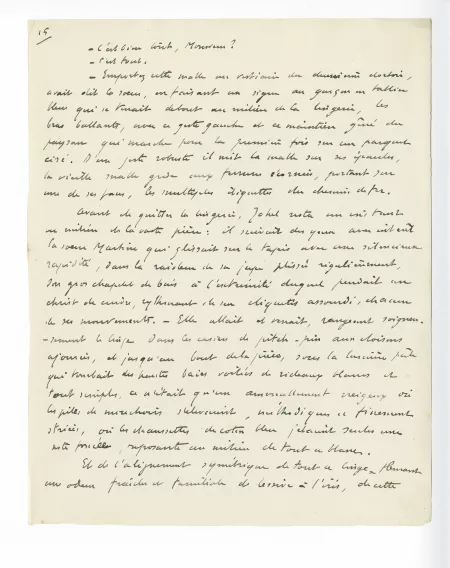 15
- C'est bien tout, Monsieur?
- C'est tout.
- Emportez cette malle au vestiaire du deuxième dortoir,
avait dit la sœur, en faisant un signe au garçon en tablier
bleu qui se tenait debout au milieu de la lingerie, les
bras ballants, avec ce geste gauche et ce maintien gêné du
paysan qui marche pour la première fois sur un parquet
ciré. D'un geste robuste il mit la malle sur ses épaules,
la vieille malle grise aux ferrures, portant sur
une de ses faces, les multiples étiquettes du chemin de fer.
Avant de quitter la lingerie, resta un instant
au milieu de la vaste pièce: il suivait des yeux
la sœur Martine qui glissait sur le tapis avec une silencieuse
rapidité, dans la raideur de sa jupe plissée régulièrement,
son gros chapelet de bois à l'extrémité duquel pendait un
christ de cuivre, rythmant de son cliquetis assourdi, chacun
de ses mouvements. - Elle allait et venait, rangeant soigneu-
-sement le linge dans les casiers de pitch-pin aux cloisons
ajourées, et jusqu'au bout de la pièce, sous la lumière pâle
qui tombait des hautes baies voilées de rideaux blancs et
tout simples, ce n'était qu'un amoncellement neigeux où
les piles de mouchoirs s'élevaient, méthodiques et finement
striées, où les chaussettes de coton bleu jetaient seules une
note foncée, reposante au milieu de tout ce blanc.
Et de l'alignement symétrique de tout ce linge fleurant
une odeur fraîche et familiale de lessive à l'iris, de cette